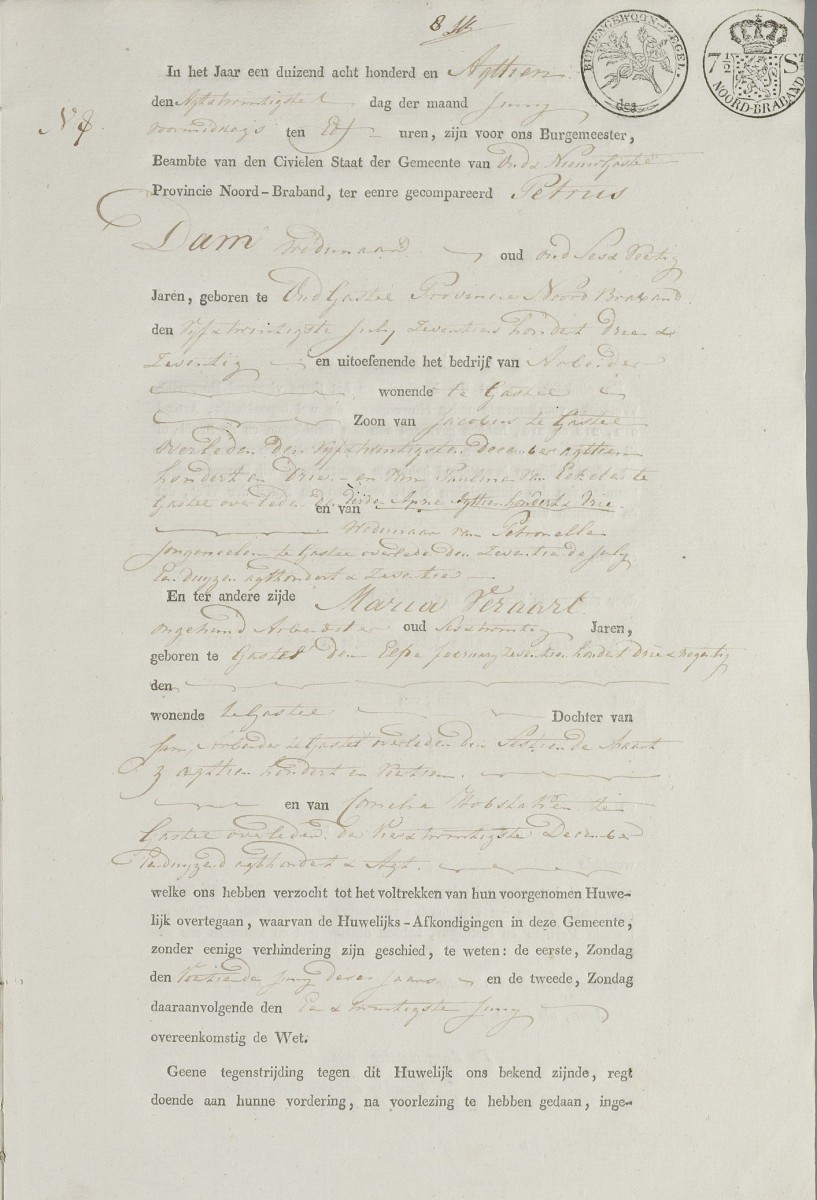 8
BUITENGEWOON-ZEGEL.
7 1/2 ST
NOORD-BRABAND
In het Jaar een duizend acht honderd en Agttien
den Agtstwintigste dag der maand Juny des
N 8.
voormiddags ten Elf uren, zijn voor ons Burgemeester,
Beambte van den Civielen Staat der Gemeente van Oud & Nieuw Gastel
Provincie Noord-Braband, ter eenre gecompareerd Petrus
Dam Wedunaar oud oud Ses & Veertig
Jaren, geboren te Oud Gastel Provincie Noord Braband
den Vyf & twintigste July Zeventien hondert Drie &
Zeventig en uitoefenende het bedrijf van Arbeider
wonende te Gastel
Zoon van Jacobus te Gastel
overleden den Vyf & twintigsten December agttien
hondert en Drie en van Paulina van
Gastel overleden den derde April Agttien hondert & Drie
en van
Wedunaar van Petronella
te Gastel overlede den Zeventiende July
Eenduyzen agthondert & Zeventien
En ter andere zijde Maria Veraart
ongehuud Arbeidster oud Ses & twintig Jaren,
geboren te Gastel den Elfde february Zeventien hondert Drie & negentig
den
wonende te Gastel Dochter van
Jan, Arbeider te Gastel overleden den Sestiende Maart
agttien hondert en
en van Cornelia te
Gastel overleden de Vier & twintigste December
Eenduyzend agthondert & Agt.
welke ons hebben verzocht tot het voltrekken van hun voorgenomen Huwe-
lijk overtegaan, waarvan de Huwelijks-Afkondigingen in deze Gemeente,
zonder eenige verhindering zijn geschied, te weten: de eerste, Zondag
den Veertiende Juny deses Jaars en de tweede, Zondag
daaraanvolgende den Een & twintigste Juny
overeenkomstig de Wet.
Geene tegenstrijding tegen dit Huwelijk ons bekend zijnde, regt
doende aan hunne vordering, na voorlezing te hebben gedaan, inge-